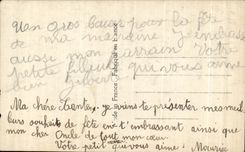 Un Gros baiser pour la fête
de ma marraine J'embrasse
aussi mon parrain Votre
petite filleule qui vous aime
bien Gilbert
Ma chère Tante, je viens te présenter mes meil
leurs souhaits de fête en t'embrassant ainsi que
mon cher Oncle de tout mon cœur
Votre petit qui vous aime Maurice
de France - Fabriqué en France